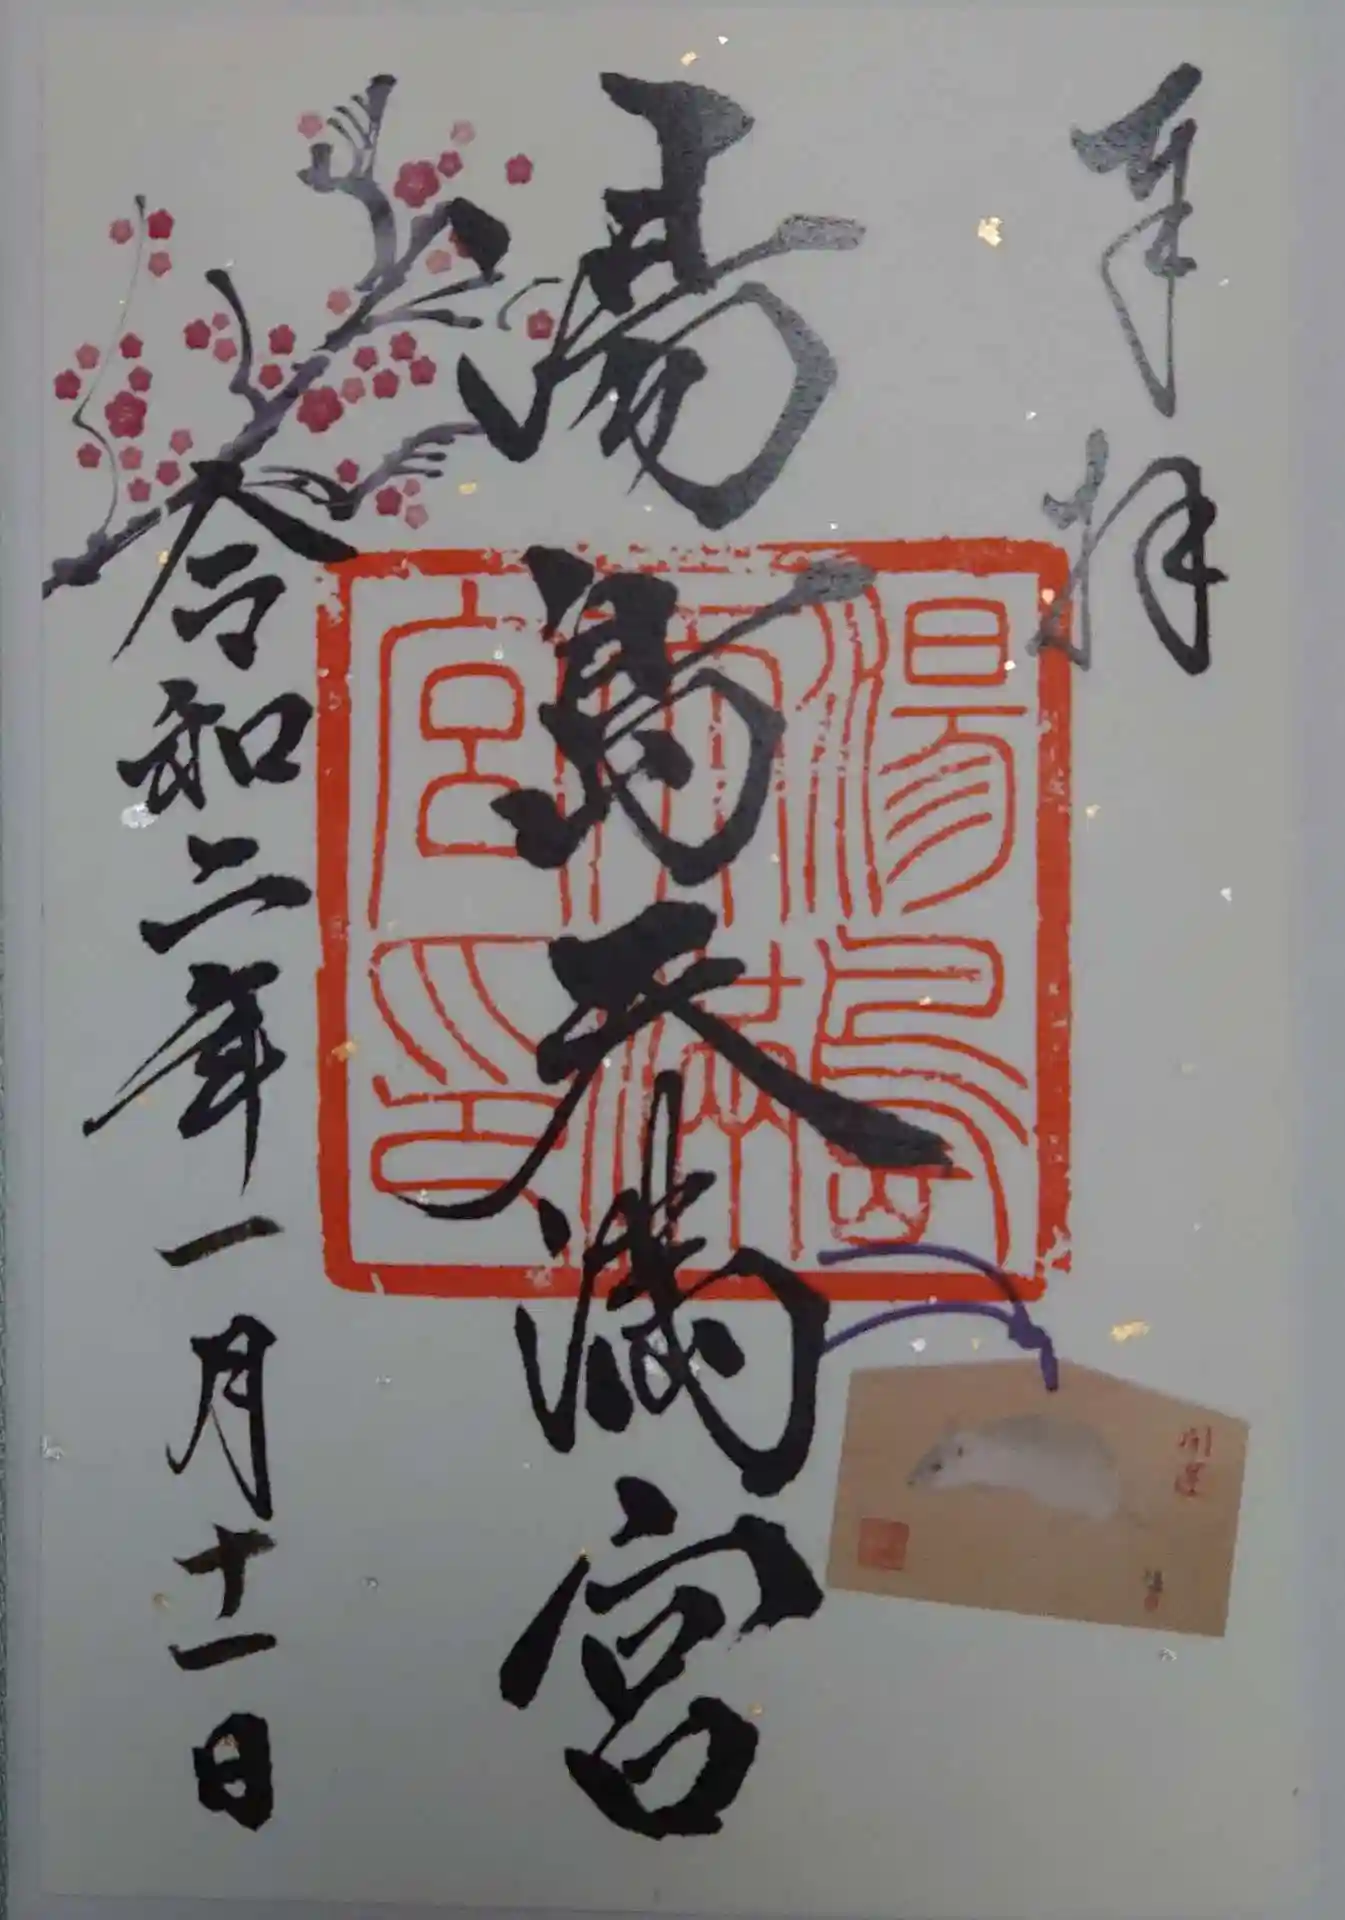 奉拝
湯島天満宮
湯島
天満
宮印
令和二年一月十一日
開運